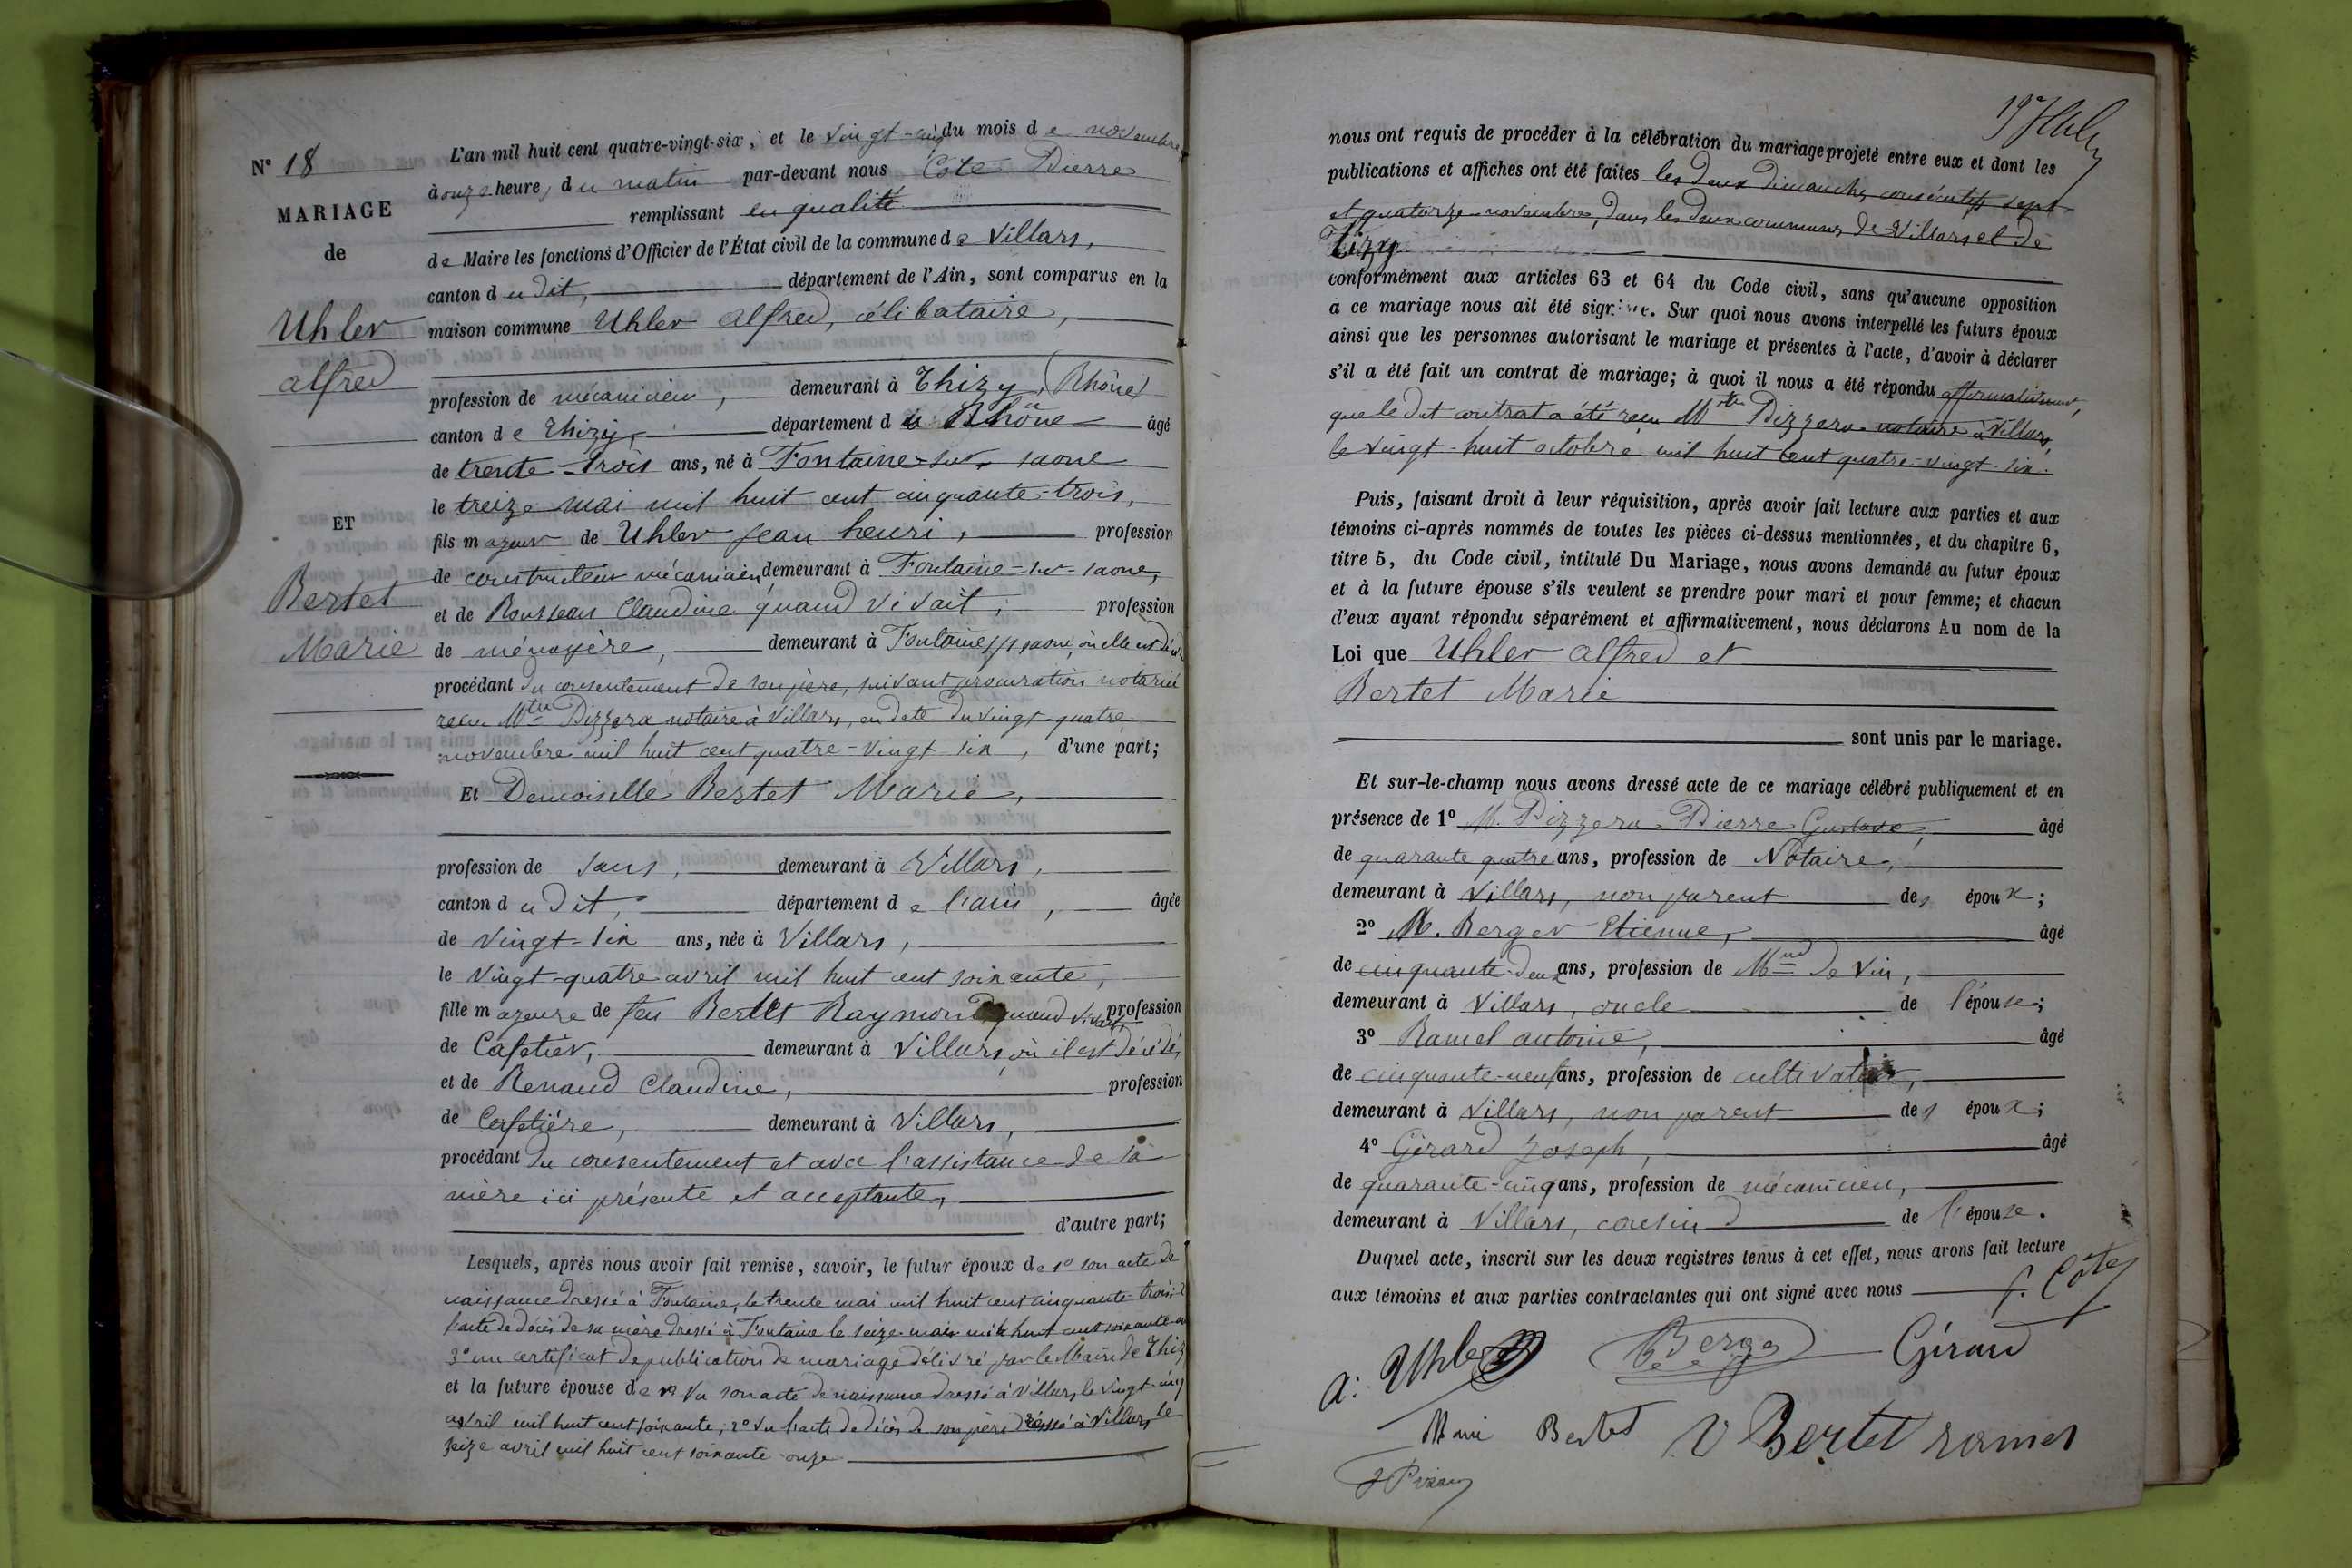 N° 18
MARIAGE
de
Uhler
alfred
ET
Bertet
Marie
L'an mil huit cent quatre-vingt-six, et le vingt-cinq du mois de novembre
à onze heures du matin par-devant nous Côte Pierre
remplissant en qualité
de Maire les fonctions d'Officier de l'État civil de la commune de Villars,
canton dudit, département de l'Ain, sont comparus en la
maison commune Uhler alfred, célibataire,
profession de mécanicien, demeurant à Thizy, (Rhône)
canton de Thizy, département du Rhône âgé
de trente-trois ans, né à Fontaine-sur-saone
le treize mai mil huit cent cinquante-trois,
fils majeur de Uhler Jean henri, profession
de constructeur mécanicien demeurant à Fontaine-sur-saone,
et de Rousseau Claudine quand vivait, profession
de ménagère, demeurant à Fontaine s/s saone, où elle est décédée
procédant du consentement de son père, suivant procuration notariée
reçue Mtre Pizzera notaire à Villars, en date du vingt-quatre
novembre mil huit cent quatre-vingt six, d'une part;
Et Demoiselle Bertet Marie,
profession de sans, demeurant à Villars,
canton dudit, département de l'ain, âgée
de vingt-six ans, née à Villars,
le vingt-quatre avril mil huit cent soixante,
fille majeure de feu Bertet Raymond quand vivait, profession
de Cafetier, demeurant à Villars, où il est décédé,
et de Renaud Claudine, profession
de Cafetière, demeurant à Villars,
procédant du consentement et avec l'assistance de sa
mère ici présente et acceptante,
d'autre part;
Lesquels, après nous avoir fait remise, savoir, le futur époux de 1° son acte de
naissance dressé à Fontaine, le trente mai mil huit cent cinquante-trois;
l'acte de décès de sa mère dressé à Fontaine le seize mai mil huit cent soixante
3° un certificat de publication de mariage délivré par le Maire de Thizy
et la future épouse de Vu son acte de naissance dressé à Villars, le vingt-cinq
avril mil huit cent soixante, 2° Vu l'acte de décès de son père dressé à Villars le
seize avril mil huit cent soixante-onze
nous ont requis de procéder à la célébration du mariage projeté entre eux et dont les
publications et affiches ont été faites les deux dimanches consécutifs sept
et quatorze novembre, dans les deux communes de Villars et de
Tizy
conformément aux articles 63 et 64 du Code civil, sans qu'aucune opposition
à ce mariage nous ait été signifiée. Sur quoi nous avons interpellé les futurs époux
ainsi que les personnes autorisant le mariage et présentes à l'acte, d'avoir à déclarer
s'il a été fait un contrat de mariage; à quoi il nous a été répondu affirmativement,
que le dit contrat a été reçu Mtre Pizzera notaire à Villars,
le vingt-huit octobre mil huit cent quatre-vingt-six.
Puis, faisant droit à leur réquisition, après avoir fait lecture aux parties et aux
témoins ci-après nommés de toutes les pièces ci-dessus mentionnées, et du chapitre 6,
titre 5, du Code civil, intitulé Du Mariage, nous avons demandé au futur époux
et à la future épouse s'ils veulent se prendre pour mari et pour femme; et chacun
d'eux ayant répondu séparément et affirmativement, nous déclarons Au nom de la
Loi que Uhler alfred et
Bertet Marie
sont unis par le mariage.
Et sur-le-champ nous avons dressé acte de ce mariage célébré publiquement et en
présence de 1° M. Pizzera Pierre Gustave, âgé
de quarante quatre ans, profession de Notaire,
demeurant à Villars, non parent des époux;
2° M. Berger Etienne, âgé
de cinquante-deux ans, profession de Mnd de vin,
demeurant à Villars, oncle de l'épouse;
3° Ramel antoine, âgé
de cinquante-neuf ans, profession de cultivateur,
demeurant à Villars, non parent des époux;
4° Gérard Joseph, âgé
de quarante-cinq ans, profession de mécanicien,
demeurant à Villars, cousin de l'épouse.
Duquel acte, inscrit sur les deux registres tenus à cet effet, nous avons fait lecture
aux témoins et aux parties contractantes qui ont signé avec nous P. Côte
A. Uhler Berger Gérard
Marie Bertet V Bertet ramel